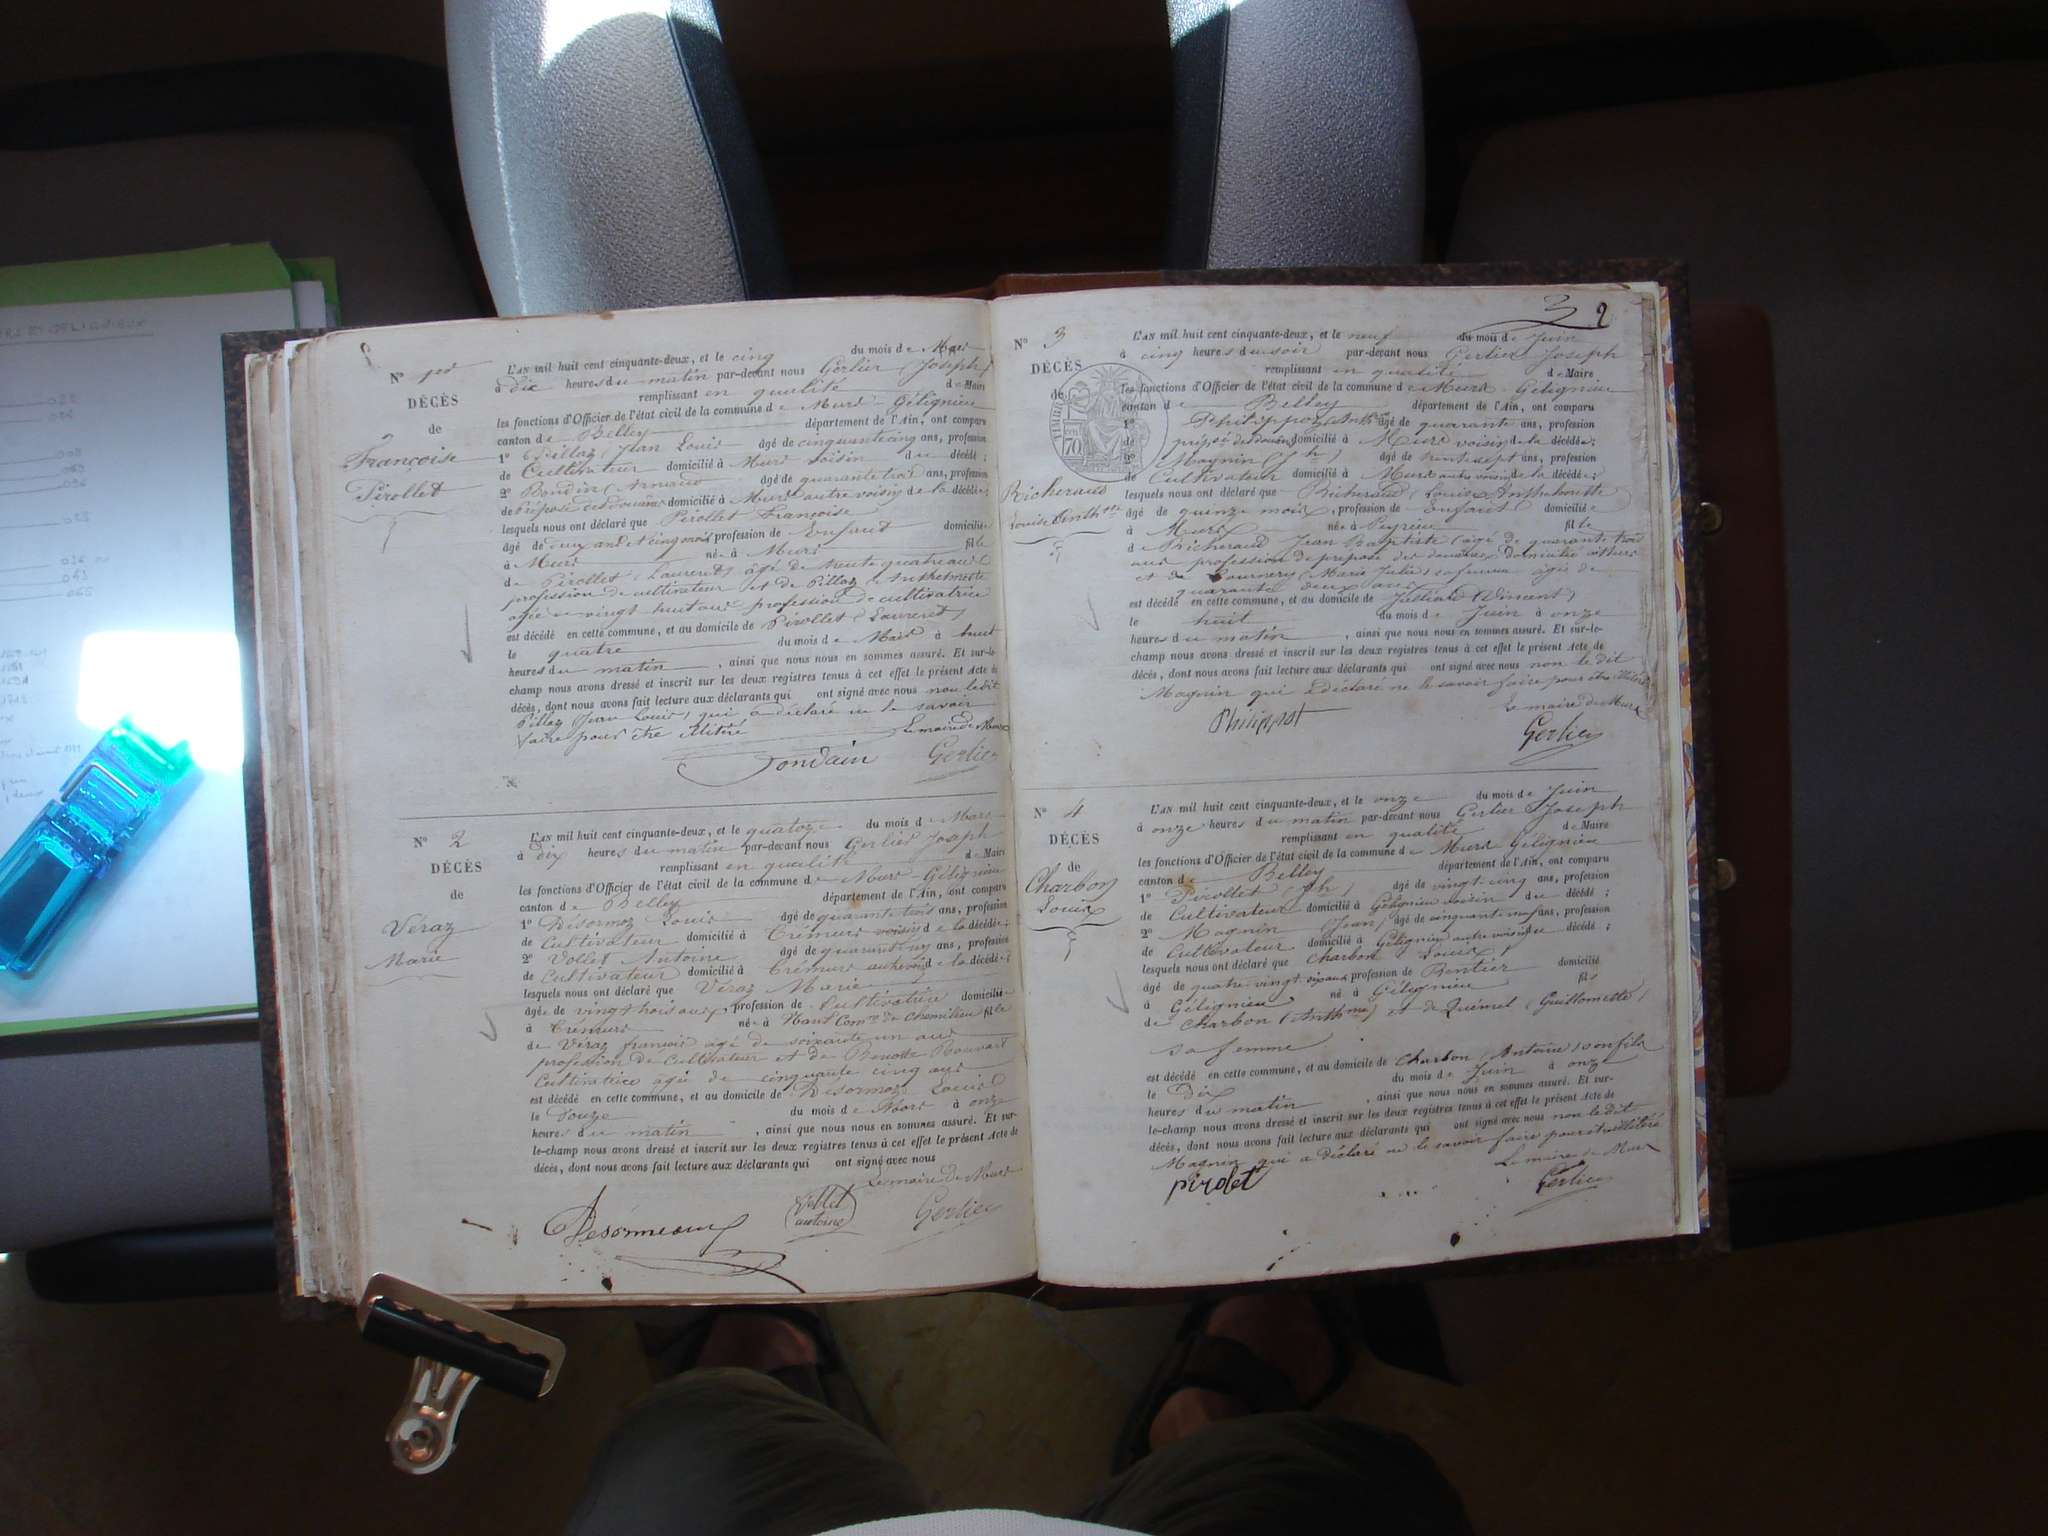 N° 1er
DÉCÈS
de
Françoise
Pirollet
L'AN mil huit cent cinquante-deux, et le cinq du mois de Mars
à dix heures du matin par-devant nous Gerlier (Joseph)
remplissant en qualité de Maire
les fonctions d'Officier de l'état civil de la commune de Murs-Gélignieu
canton de Belley département de l'Ain, ont comparu
1° Pillaz (Jean Louis âgé de cinquante cinq ans, profession
de Cultivateur domicilié à Murs voisin du décédé ;
2° Bondin (Arnaud âgé de quarante trois ans, profession
de Préposé des douanes domicilié à Murs autre voisin de la décédée ;
lesquels nous ont déclaré que Pirollet Françoise
âgé de deux ans et cinq mois profession de Enfant domiciliée
à Murs née à Murs fille
de Pirollet (Laurent) âgé de trente quatre ans
profession de cultivateur et de Pillaz Anthelmette
âgée de vingt huit ans profession de cultivatrice
est décédé en cette commune, et au domicile de Pirollet (Laurent)
le quatre du mois de Mars à huit
heures du matin , ainsi que nous nous en sommes assuré. Et sur-le-
champ nous avons dressé et inscrit sur les deux registres tenus à cet effet le présent Acte de
décès, dont nous avons fait lecture aux déclarants qui ont signé avec nous non le dit
Pillaz (Jean Louis) qui a déclaré ne le savoir
faire pour être illitéré
Le maire de Murs
Gerlier
N° 2
DÉCÈS
de
Véraz
Marie
L'AN mil huit cent cinquante-deux, et le quatorze du mois de Mars
à dix heures du matin par-devant nous Gerlier Joseph
remplissant en qualité de Maire
les fonctions d'Officier de l'état civil de la commune de Murs-Gélignieu
canton de Belley département de l'Ain, ont comparu
1° Désormoz Louis âgé de quarante trois ans, profession
de Cultivateur domicilié à Crémurs voisin de la décédée ;
2° Vollet Antoine âgé de ans, profession
de Cultivateur domicilié à Crémurs autre voisin de la décédée ;
lesquels nous ont déclaré que Véraz Marie
âgée de vingt trois ans profession de Cultivatrice domiciliée
à Crémurs née à fille
de Véraz françois âgé de soixante un ans
profession de Cultivateur et de Benoîte
Cultivatrice âgée de cinquante cinq ans
est décédé en cette commune, et au domicile de Désormoz Louis
le Douze du mois de Mars à onze
heures du matin , ainsi que nous nous en sommes assuré. Et sur-
le-champ nous avons dressé et inscrit sur les deux registres tenus à cet effet le présent Acte de
décès, dont nous avons fait lecture aux déclarants qui ont signé avec nous
Le maire de Murs
Desormeaux
Vollet
antoine
Gerlier
3 2
N° 3
DÉCÈS
de
TIMBRE
70
Richeraud
Louise Anth
L'AN mil huit cent cinquante-deux, et le neuf du mois de Juin
à cinq heures du soir par-devant nous Gerlier Joseph
remplissant en qualité de Maire
les fonctions d'Officier de l'état civil de la commune de Murs-Gélignieu
canton de Belley département de l'Ain, ont comparu
1° âgé de quarante ans, profession
de préposé des douanes domicilié à Murs voisin de la décédée ;
2° Magnin (Jh) âgé de trente sept ans, profession
de Cultivateur domicilié à Murs autre voisin de la décédée ;
lesquels nous ont déclaré que Richeraud (Louise
âgé de quinze mois, profession de Enfant domiciliée
à Murs née à Peyrieu fille
de Richeraud Jean Baptiste (âgé de quarante trois
ans profession de préposé des douanes domicilié à Murs
et de (Marie Julie) sa femme âgée de
quarante deux ans
est décédé en cette commune, et au domicile de Julliard (Vincent)
le huit du mois de Juin à onze
heures du matin , ainsi que nous nous en sommes assuré. Et sur-le-
champ nous avons dressé et inscrit sur les deux registres tenus à cet effet le présent Acte de
décès, dont nous avons fait lecture aux déclarants qui ont signé avec nous non le dit
Magnin qui a déclaré ne le savoir faire pour être illitéré
Le maire de Murs
Philippot
Gerlier
N° 4
DÉCÈS
de
Charbon
Louis
L'AN mil huit cent cinquante-deux, et le onze du mois de Juin
à onze heures du matin par-devant nous Gerlier Joseph
remplissant en qualité de Maire
les fonctions d'Officier de l'état civil de la commune de Murs Gélignieu
canton de Belley département de l'Ain, ont comparu
1° Pirollet (Jh) âgé de vingt-cinq ans, profession
de Cultivateur domicilié à Gélignieu voisin du décédé ;
2° Magnin (Jean) âgé de cinquante neuf ans, profession
de Cultivateur domicilié à Gélignieu autre voisin du décédé ;
lesquels nous ont déclaré que Charbon (Louis)
âgé de quatre vingt ans profession de Rentier domicilié
à Gélignieu né à Gélignieu fils
de Charbon (Anthme) et de Quémel (Guillomette)
sa femme
est décédé en cette commune, et au domicile de Charbon (Antoine) son fils
le Dix du mois de Juin à onze
heures du matin , ainsi que nous nous en sommes assuré. Et sur-
le-champ nous avons dressé et inscrit sur les deux registres tenus à cet effet le présent Acte de
décès, dont nous avons fait lecture aux déclarants qui ont signé avec nous non le dit
Magnin qui a déclaré ne le savoir faire pour être illitéré
Le maire de Murs
pirolet
Gerlier